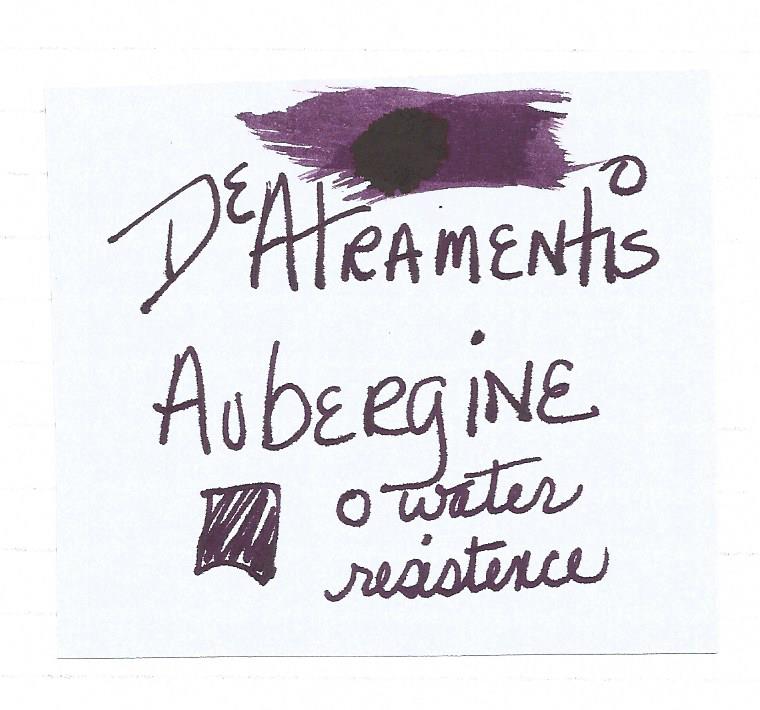 De Atramentis
Aubergine
0 water
resistence